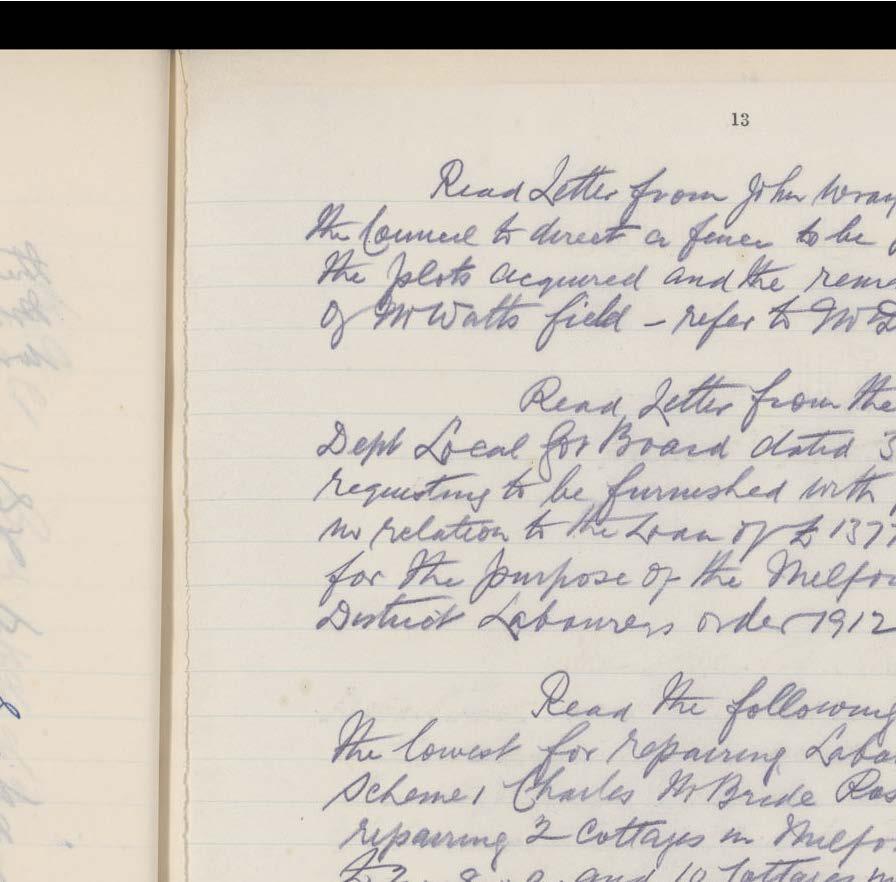 13
Read Letter from John Wray
the Council to direct a fence to be
the plots acquired and the rema
of Mr Watts field - refer to Mr D
Read Letter from the
Dept Local Gov Board dated 3
requesting to be furnished with
in relation to the Loan of £137
for the purpose of the Milfo
District Labourers order 1912
Read the following
the lowest for repairing Labo
Scheme 1 Charles McBride Ros
repairing 2 Cottages in Milfo
and 10 Cottages in